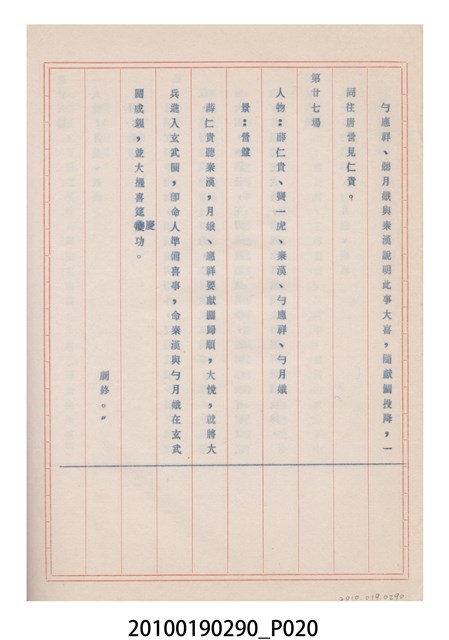 勻應祥、勻月娥與秦漢說明此事大喜，隨獻圖投降，一
同往唐營見仁貴。
第廿七場
人物：薛仁貴、竇一虎、秦漢、勻應祥、勻月娥
景：營盤
薛仁貴聽秦漢，月娥、應祥要獻關歸順，大悅，就將大
兵進入玄武關，卽命人準備喜事，命秦漢與勻月娥在玄武
關成親，並大擺喜筵慶功。
劇終。
2010.019.0290
20100190290_P020